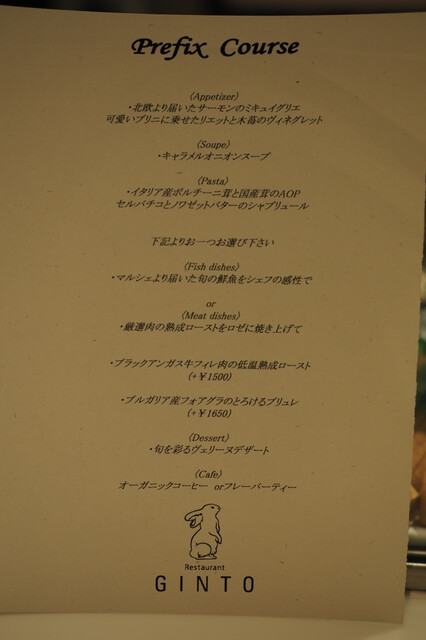 Prefix Course
〈Appetizer〉
・北欧より届いたサーモンのミキュイグリエ
可愛いブリニに乗せたリエットと木苺のヴィネグレット
〈Soupe〉
・キャラメルオニオンスープ
〈Pasta〉
・イタリア産ポルチーニ茸と国産茸のAOP
セルバチコとノワゼットバターのシャブリュール
下記よりお一つお選び下さい
〈Fish dishes〉
・マルシェより届いた旬の鮮魚をシェフの感性で
or
〈Meat dishes〉
・厳選肉の熟成ローストをロゼに焼き上げて
・ブラックアンガス牛フィレ肉の低温熟成ロースト
(+￥1500)
・ブルガリア産フォアグラのとろけるブリュレ
(+￥1650)
〈Dessert〉
・旬を彩るヴェリーヌデザート
〈Cafe〉
オーガニックコーヒー orフレーバーティー
Restaurant
GINTO